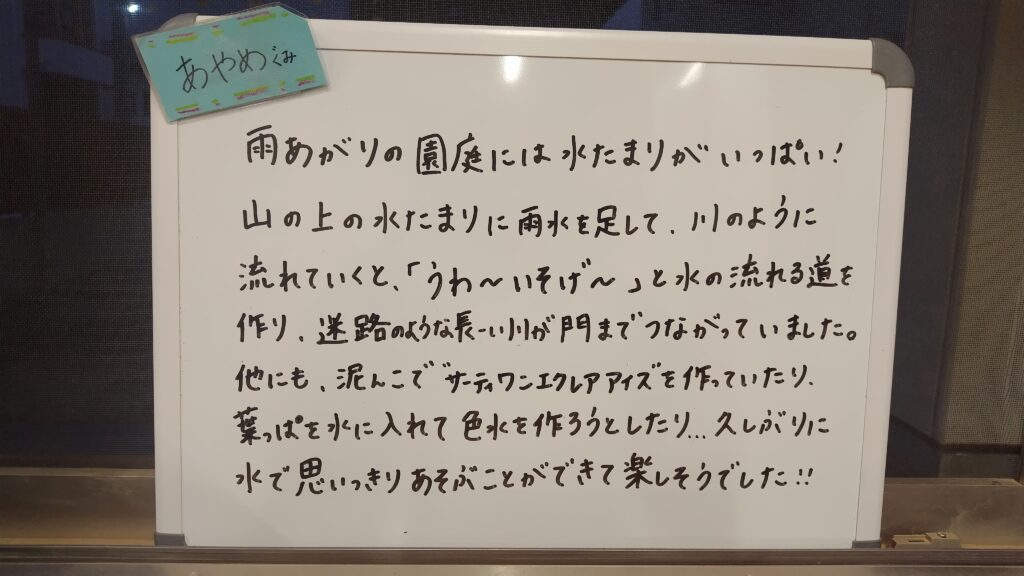 あやめぐみ
雨あがりの園庭には水たまりがいっぱい!
山の上の水たまりに雨水を足して、川のように
流れていくと、「うわ～いそげ～」と水の流れる道を
作り、迷路のような長ーい川が門までつながっていました。
他にも、泥んこでサーティワンエクレアアイズを作っていたり、
葉っぱを水に入れて色水を作ろうとしたり…久しぶりに
水で思いっきりあそぶことができて楽しそうでした!!